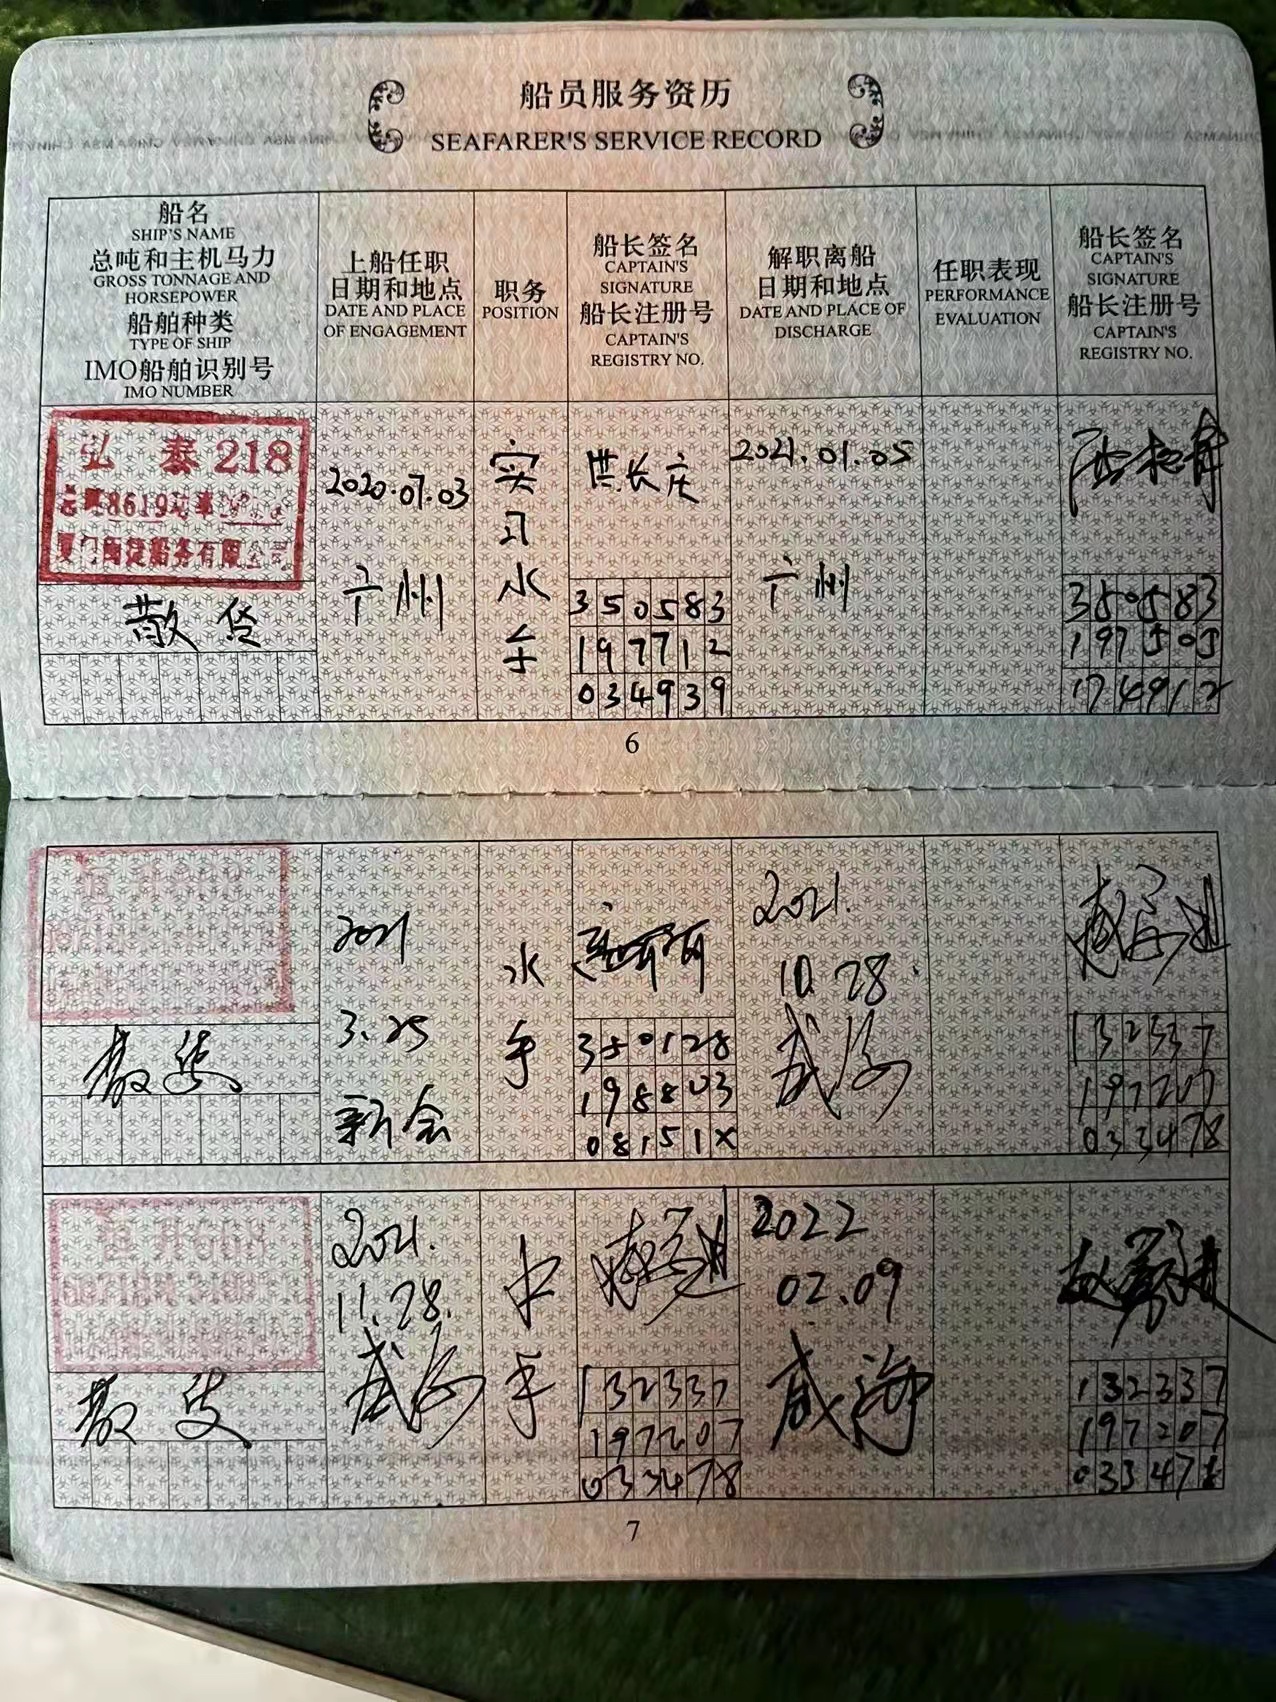 船员服务资历
SEAFARER'S SERVICE RECORD
船名
SHIP'S NAME
总吨和主机马力
GROSS TONNAGE AND
HORSEPOWER
船舶种类
TYPE OF SHIP
IMO船舶识别号
IMO NUMBER
上船任职
日期和地点
DATE AND PLACE
OF ENGAGEMENT
职务
POSITION
船长签名
CAPTAIN'S
SIGNATURE
船长注册号
CAPTAIN'S
REGISTRY NO.
解职离船
日期和地点
DATE AND PLACE OF
DISCHARGE
任职表现
PERFORMANCE
EVALUATION
船长签名
CAPTAIN'S
SIGNATURE
船长注册号
CAPTAIN'S
REGISTRY NO.
弘泰218
8619
船务有限公司
散货
2020.07.03
广州
实
习
水
手
洪长庆
350583
197712
034939
2021.01.05
广州
350583
197503
174912
6
散货
2021
3.25
新会
水
手
350128
198803
08151X
2021.
10.28
威海
132337
197207
033478
散货
2021.
11.28.
威海
水
手
132337
197207
033478
2022
02.09
威海
132337
197207
033478
7